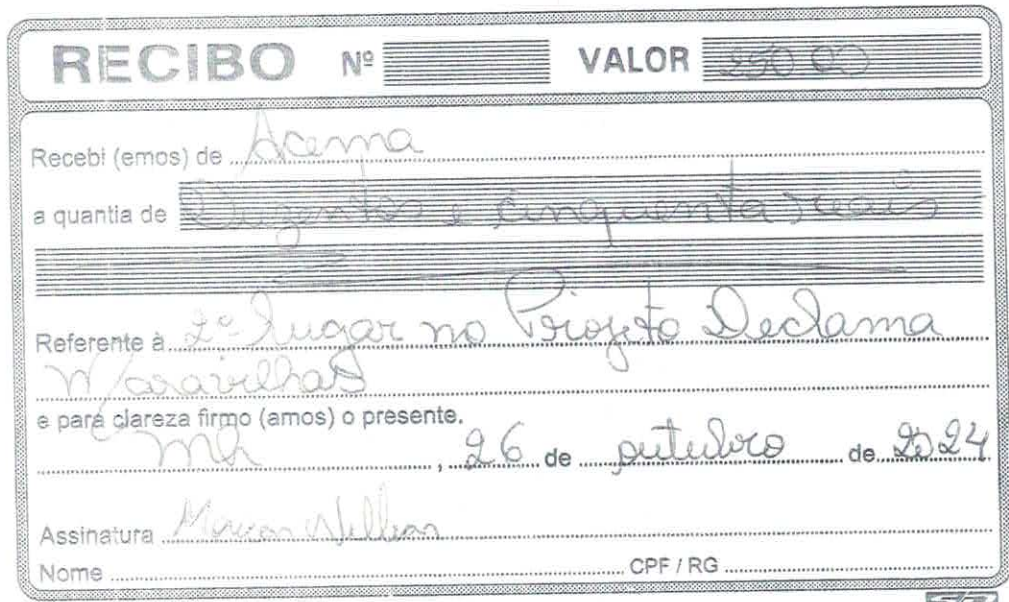 RECIBO Nº VALOR 250 00
Recebi (emos) de Acema
a quantia de Duzentos e cinquenta reais
Referente à 2º lugar no Projeto Declama
Maravilhas
e para clareza firmo (amos) o presente.
Mh , 26 de outubro de 2024
Assinatura Willian
Nome CPF / RG